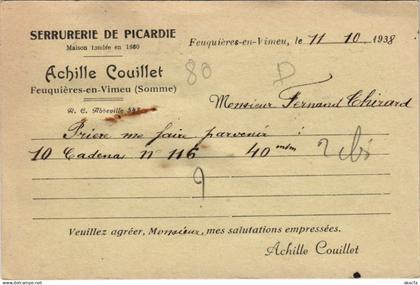 SERRURERIE DE PICARDIE
Maison fondée en 1860
Feuquières-en-Vimeu, le 11 10 1938
Achille Couillet
80
Feuquières-en-Vimeu (Somme)
Monsieur Fernand Thirard
R. C. Abbeville 547
Prière me faire parvenir :
10 Cadenas n° 116 40 m/m
Veuillez agréer, Monsieur, mes salutations empressées.
Achille Couillet